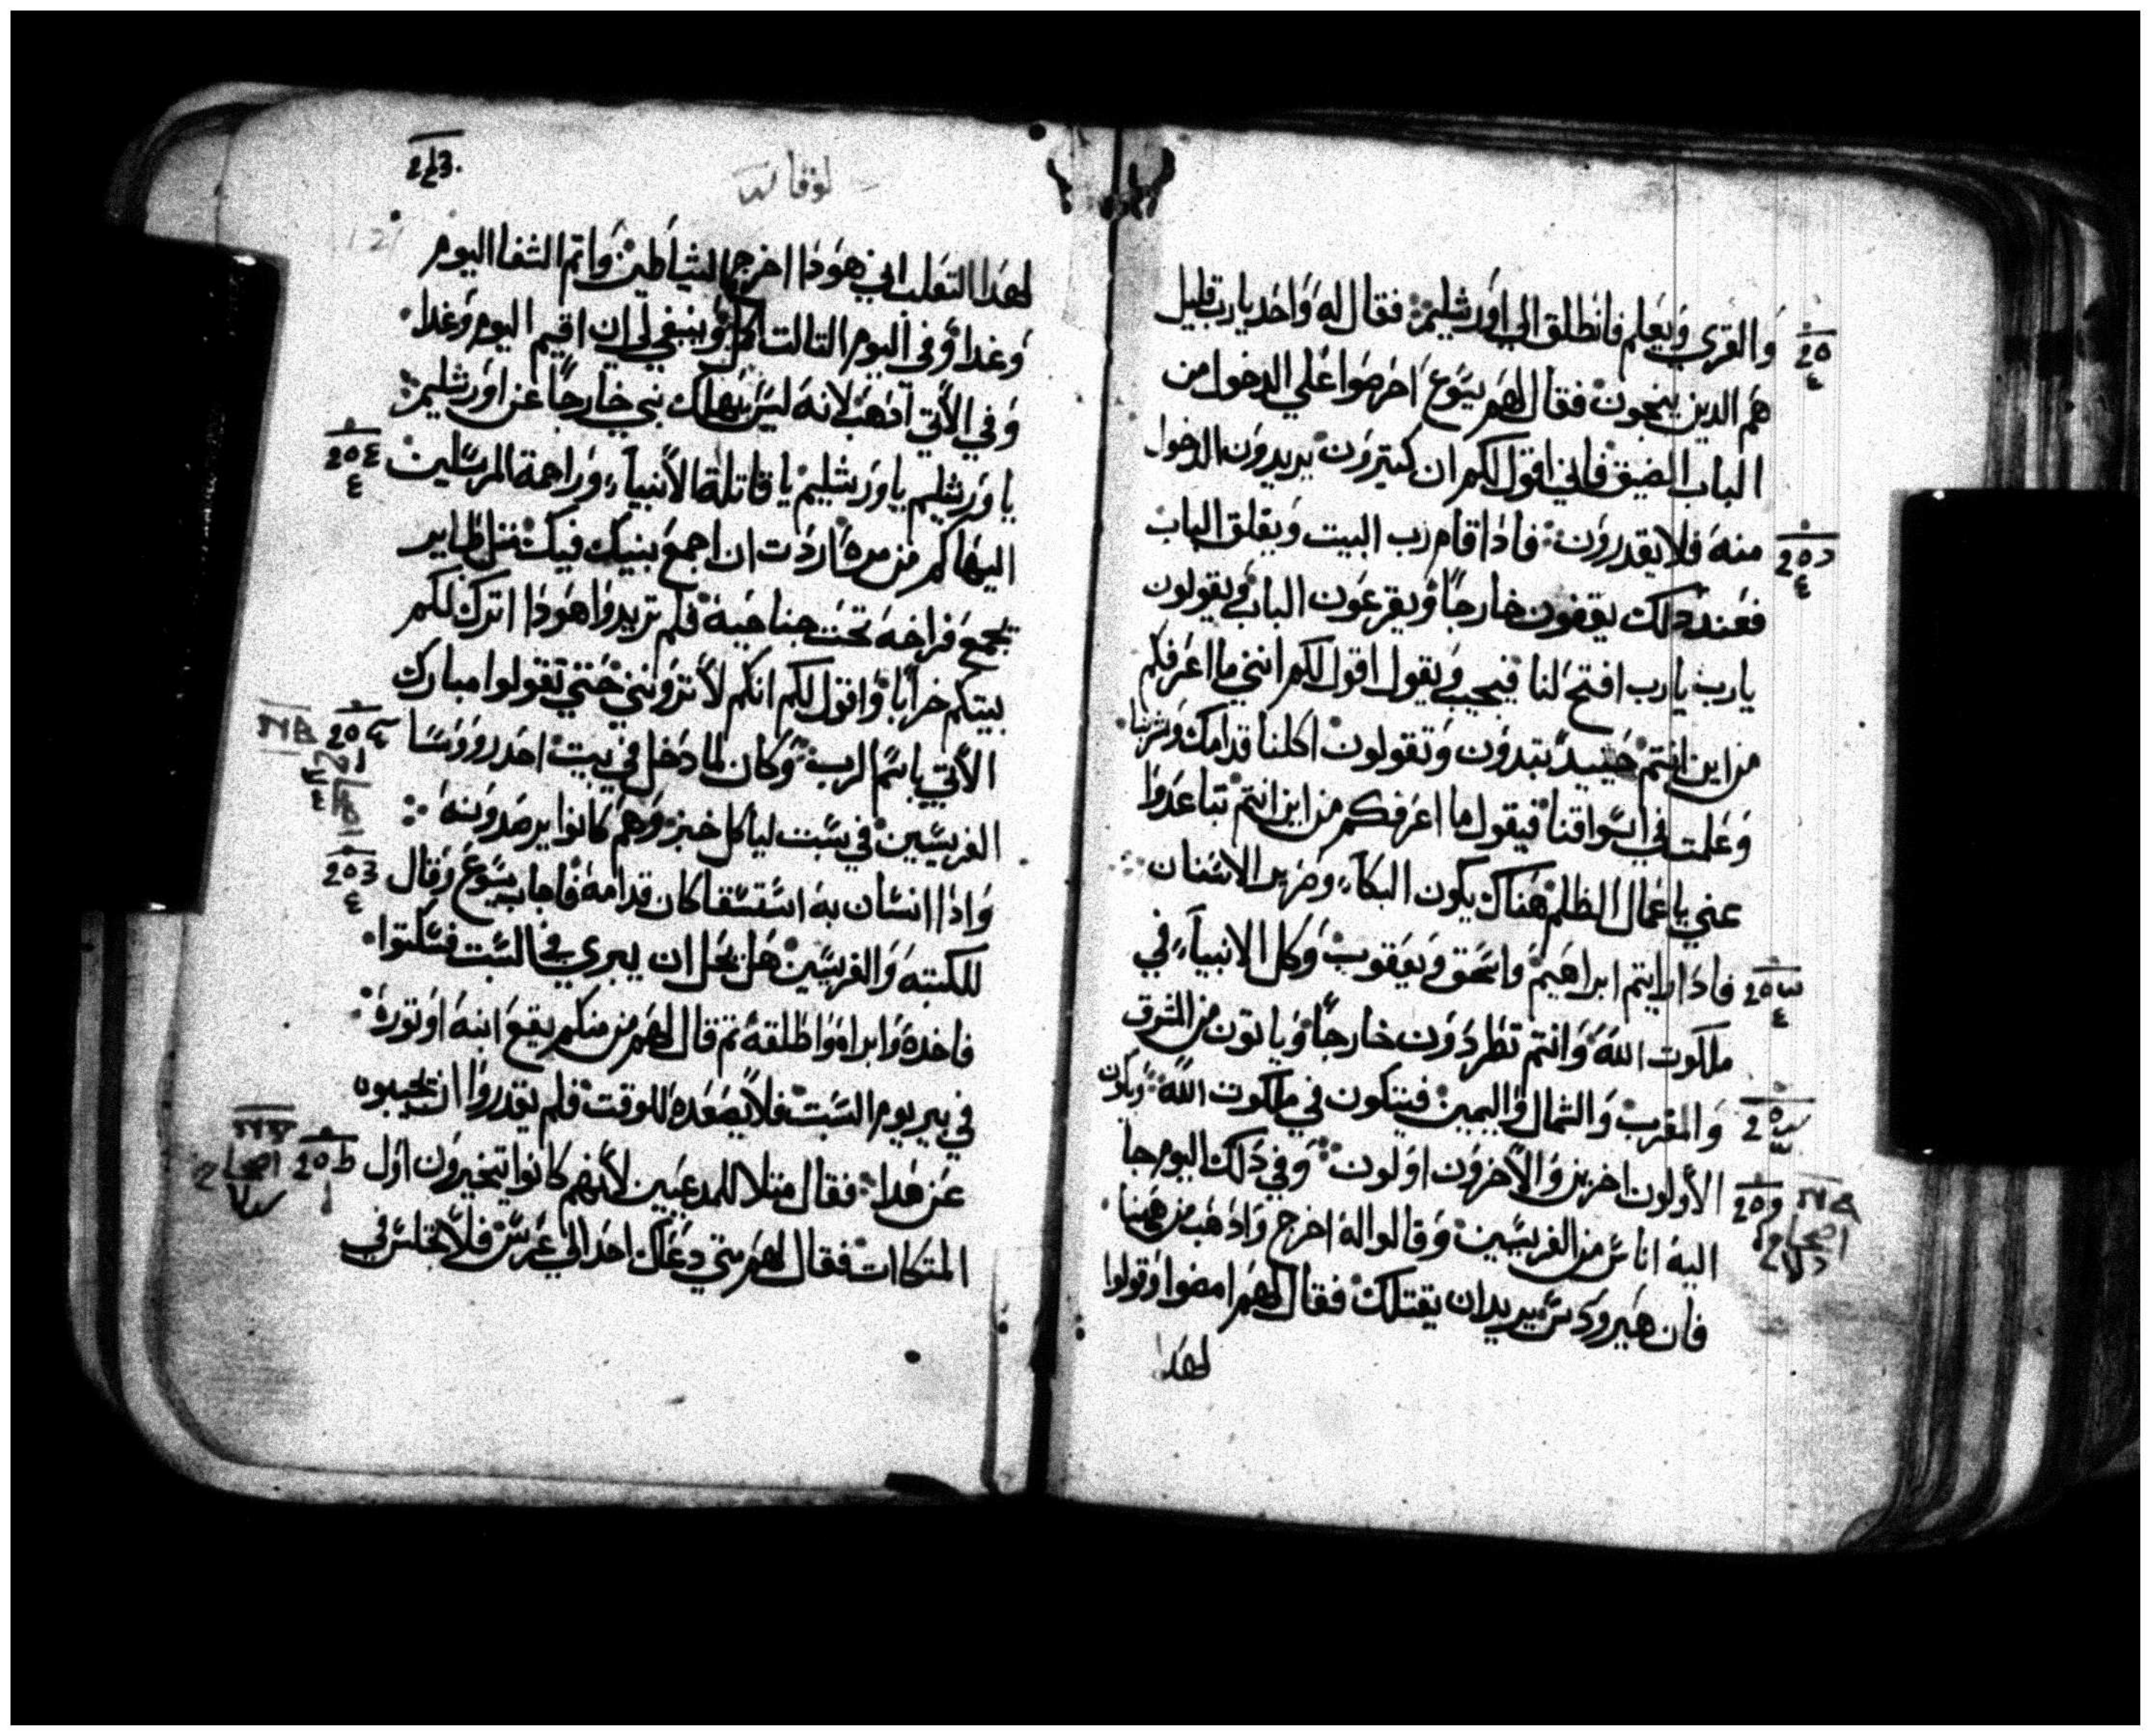 والقري ويعلم فانطلق الي اورشليم فقال له واحد يارب قليل
هم الدين ينجون فقال لهم يسوع احرصوا علي الدخول من
الباب الضيق فاني اقول لكم ان كتيرون يريدون الدخول
منه فلا يقدرون فادا قام رب البيت ويغلق الباب
فعند دلك يقفون خارجا ويقرعون الباب ويقولون
يارب يارب افتح لنا فيجيب ويقول اقول لكم انني ما اعرفكم
من اين انتم حينيد تبتدون وتقولون اكلنا قدامك وشربنا
وعلمت في اسواقنا فيقول ما اعرفكم من اين انتم تباعدوا
عني ياعمال الظلم هناك يكون البكاء وصرير الاسنان
فادا رايتم ابراهيم واسحق ويعقوب وكل الانبياء في
ملكوت الله وانتم تطردون خارجا وياتون من الشرق
والمغرب والشمال واليمين فيتكون في ملكوت الله ويكون
الأولون اخرين والأخرون اولون وفي دلك اليوم جا
اليه اناس من الفريسيين وقالوا له اخرج وادهب من هاهنا
فان هيرودس يريد ان يقتلك فقال لهم امضوا وقولوا
لهدا
لوقا
لهدا التعلب اني هودا اخرج الشياطين واتم الشفا اليوم
وغدا وفي اليوم التالت اكمل وينبغي لي ان اقيم اليوم وغدا
وفي الأتي ادهب لانه ليس يهلك نبي خارجا عن اورشليم
ياورشليم ياورشليم يا قاتلة الأنبياء وراجمة المرسلين
اليها كم من مرة اردت ان اجمع بنيك فيك متل طاير
يجمع فراخه تحت جناحيه فلم تريدوا هودا اترك لكم
بيتكم خرابا واقول لكم انكم لأ ترونني حتي تقولوا مبارك
الأتي باسم الرب وكان لما دخل في بيت احد روسا
الفريسيين في سبت لياكل خبز وهم كانوا يرصدونه
واذا انسان به استسقا كان قدامه فاجاب يسوع وقال
للكتبه والفريسين هل يحل ان يبري في السبت فسكتوا
فاخده وابراه واطلقه تم قال لهم من منكم يقع ابنه او توره
في بير يوم السبت فلا يصعده للوقت فلم يقدروا ان يجيبوه
عن هدا فقال متلا للمدعيين لأنهم كانوا يتخيرون اول
المتكات فقال لهم متي دعاك احد الي عرس فلا تجلس في